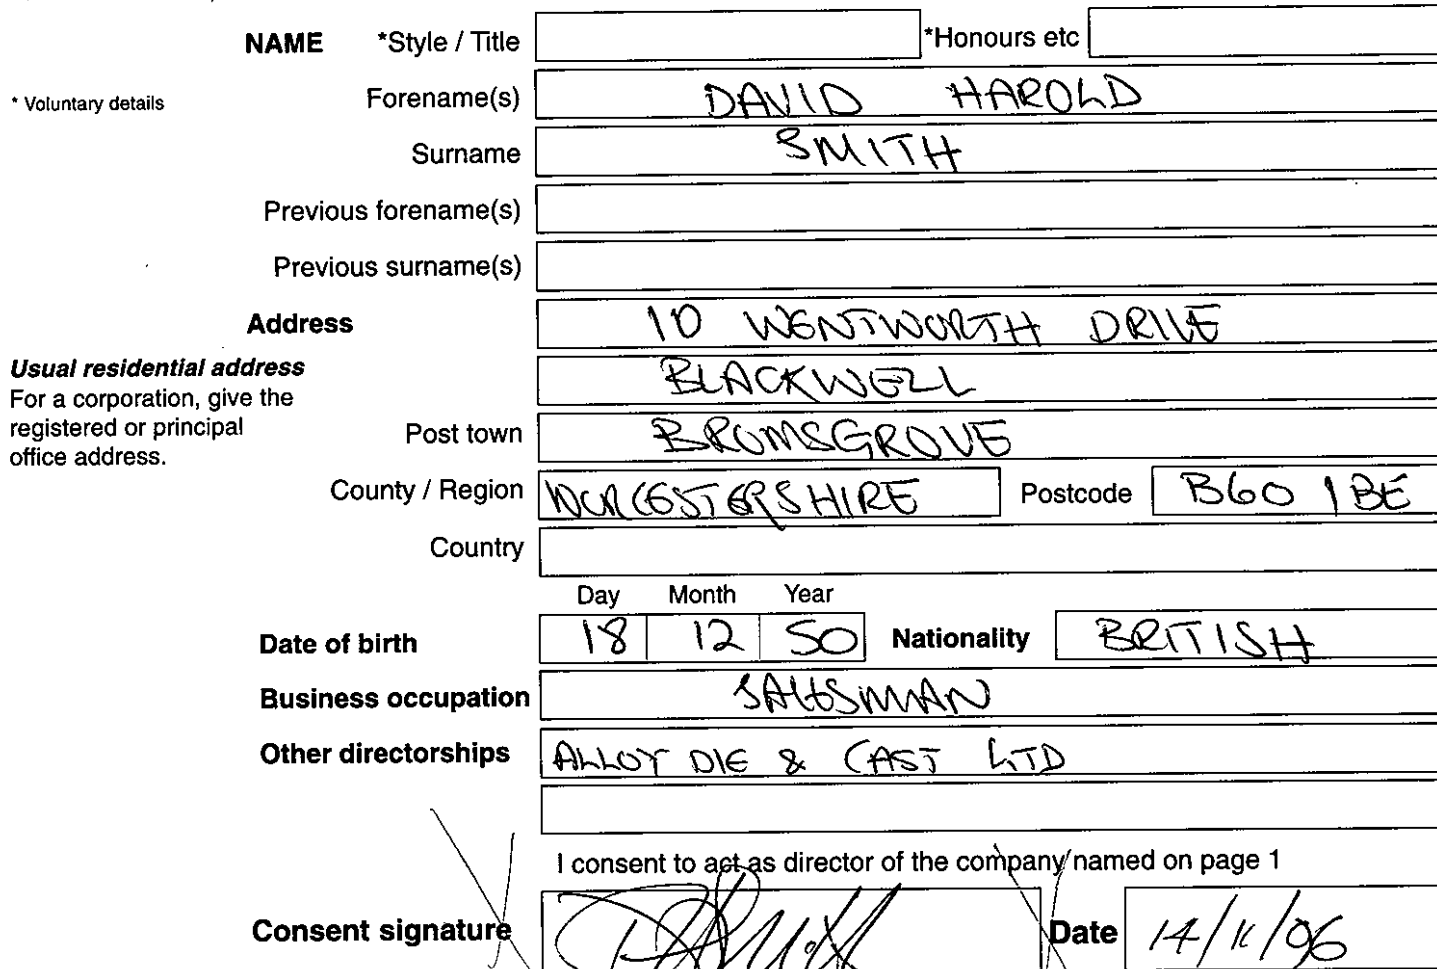 NAME *Style / Title *Honours etc
* Voluntary details Forename(s) DAVID HAROLD
Surname SMITH
Previous forename(s)
Previous surname(s)
Address 10 WENTWORTH DRIVE
Usual residential address BLACKWELL
For a corporation, give the
registered or principal Post town BROMSGROVE
office address.
County / Region WORCESTERSHIRE Postcode B60 1BE
Country
Day Month Year
Date of birth 18 12 50 Nationality BRITISH
Business occupation SALESMAN
Other directorships ALLOY DIE & CAST LTD
I consent to act as director of the company named on page 1
Consent signature Date 14/11/96